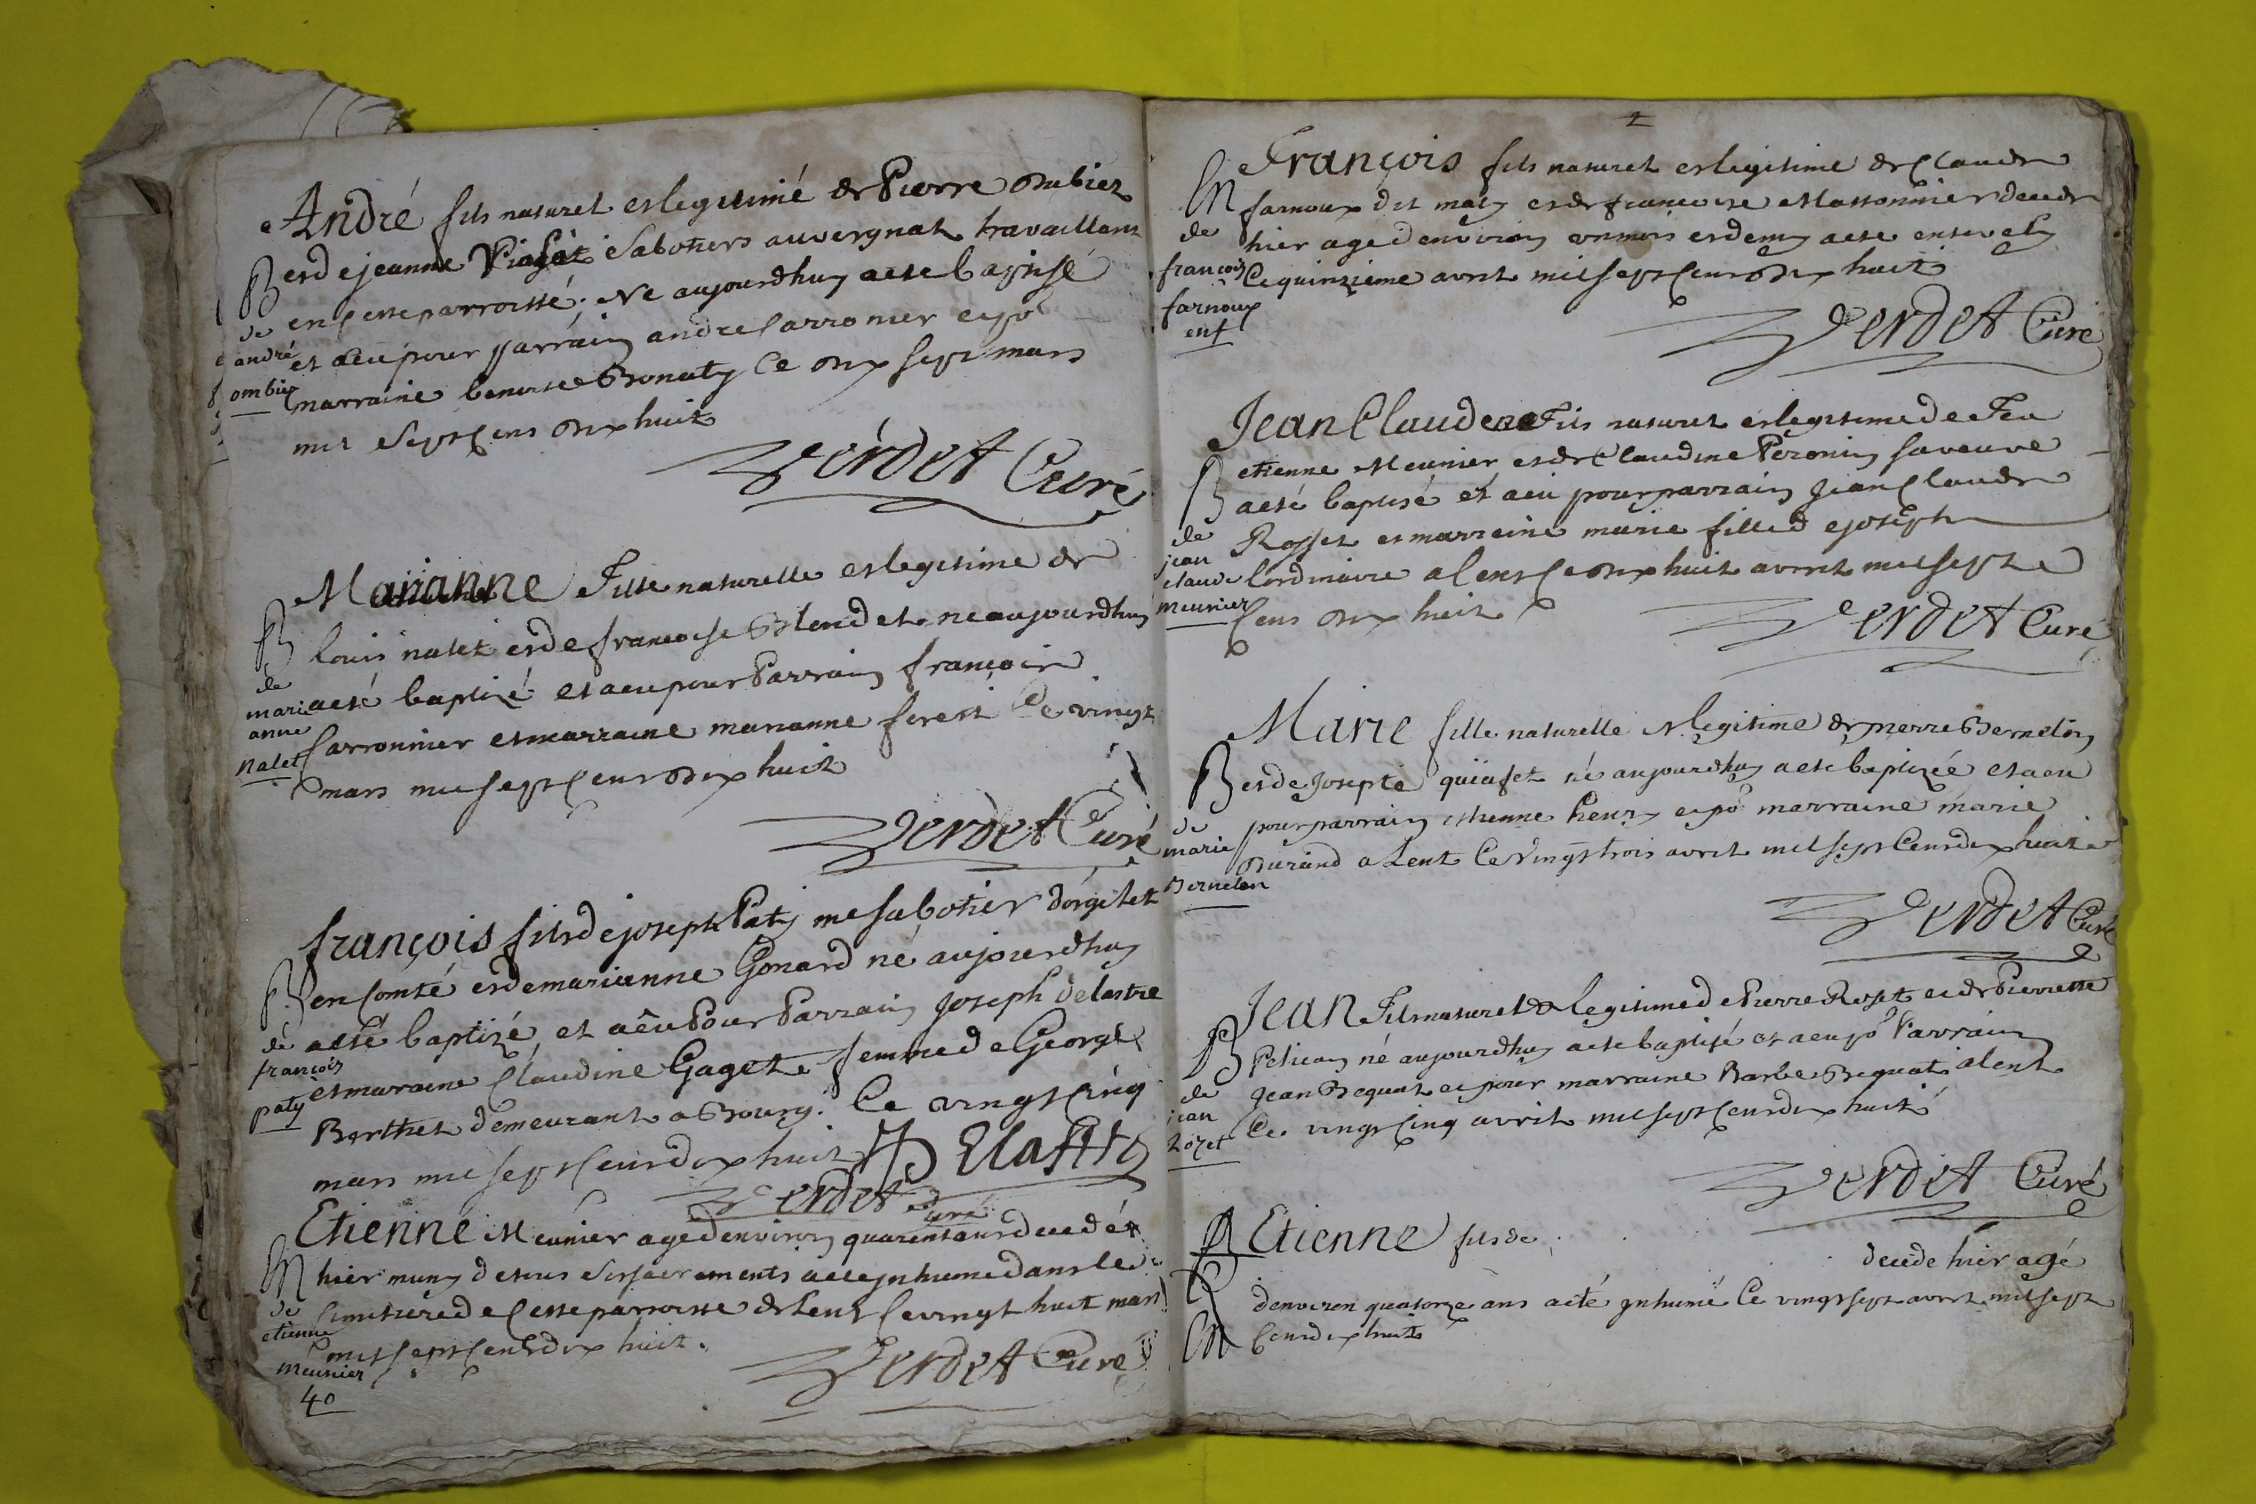 André fils naturel et legitimé de Pierre ombiez
B et de jeanne Viagat Sabotiers auvergnat travaillant
de en cette parroisse, Ne aujourdhuy a este baptisé
andré et a eu pour parrain andre Carronier et po
ombiez marraine benoite Bonaty Ce dix sept mars
mil sept Cens dix huit
Verdet Curé
Marianne Fille naturelle et legitime de
B louis nalet et de francoise Blondet ne aujourdhuy
de
marie a esté baptizé et a eu pour Parrain francois
anne
nalet Carronnier et marraine marianne forest Ce vingt
mars mil sept Cens dix huit
Verdet Curé
françois fils de joseph Paty me sabotier dorgelet
B en Comté et de marianne Gonard né aujourdhuy
de a esté baptizé, et a eu Pour Parrain Joseph delastre
françois
paty et maraine Claudine Gaget femme de George
Berthet demeurant a Bourg. Ce vingt Cinq
mars mil sept Cens dix huit
Verdet Curé
Etienne Meunier agé denviron quarent ans decedé
M hier muny de tous Ses sacrements a este inhumé dans le
de Cimetiere de Cette parroisse de Lent Ce vingt huit mars
etienne
mil sept Cens dix huit.
meunier
40
Verdet Curé
François fils naturel et legitime de Claude
M farnoux dit maty et de francoise Massonnier decede
de hier age denviron un mois et demy a este ensevely
françois Ce quinzieme avril mil sept Cens dix huit
farnoux
enf
Verdet Curé
Jean Claude Fils naturel et legitime de Feu
etienne Meunier et de Claudine Peronin sa veuve
B a esté baptisé et a eu pour parrain Jean Claude
de Rosset et marreine marie fille de joseph
jean
claude lordinaire a lent Ce dix huit avril mil sept
meunier Cens dix huit
Verdet Curé
Marie fille naturelle et legitime de pierre Berneton
B et de Josepte quiafet né aujourdhuy a este baptizée et a eu
de pour parrain etienne henry et po marraine marie
marie Durand a Lent Ce vingt trois avril mil sept Cens dix huit
Berneton
Verdet Curé
Jean Fils naturel et legitime de Pierre Roset et de Pierrette
B Pelican né aujourdhuy a este baptisé et a eu po Parrain
de Jean Bequat et pour marraine Barbe Bequat a lent
jean Ce vingt Cinq avril mil sept Cens dix huit
rozet
Verdet Curé
Etienne fils de
decede hier agé
denviron quatorze ans a eté inhumé Ce vingt sept avril mil sept
M Cens dix huit